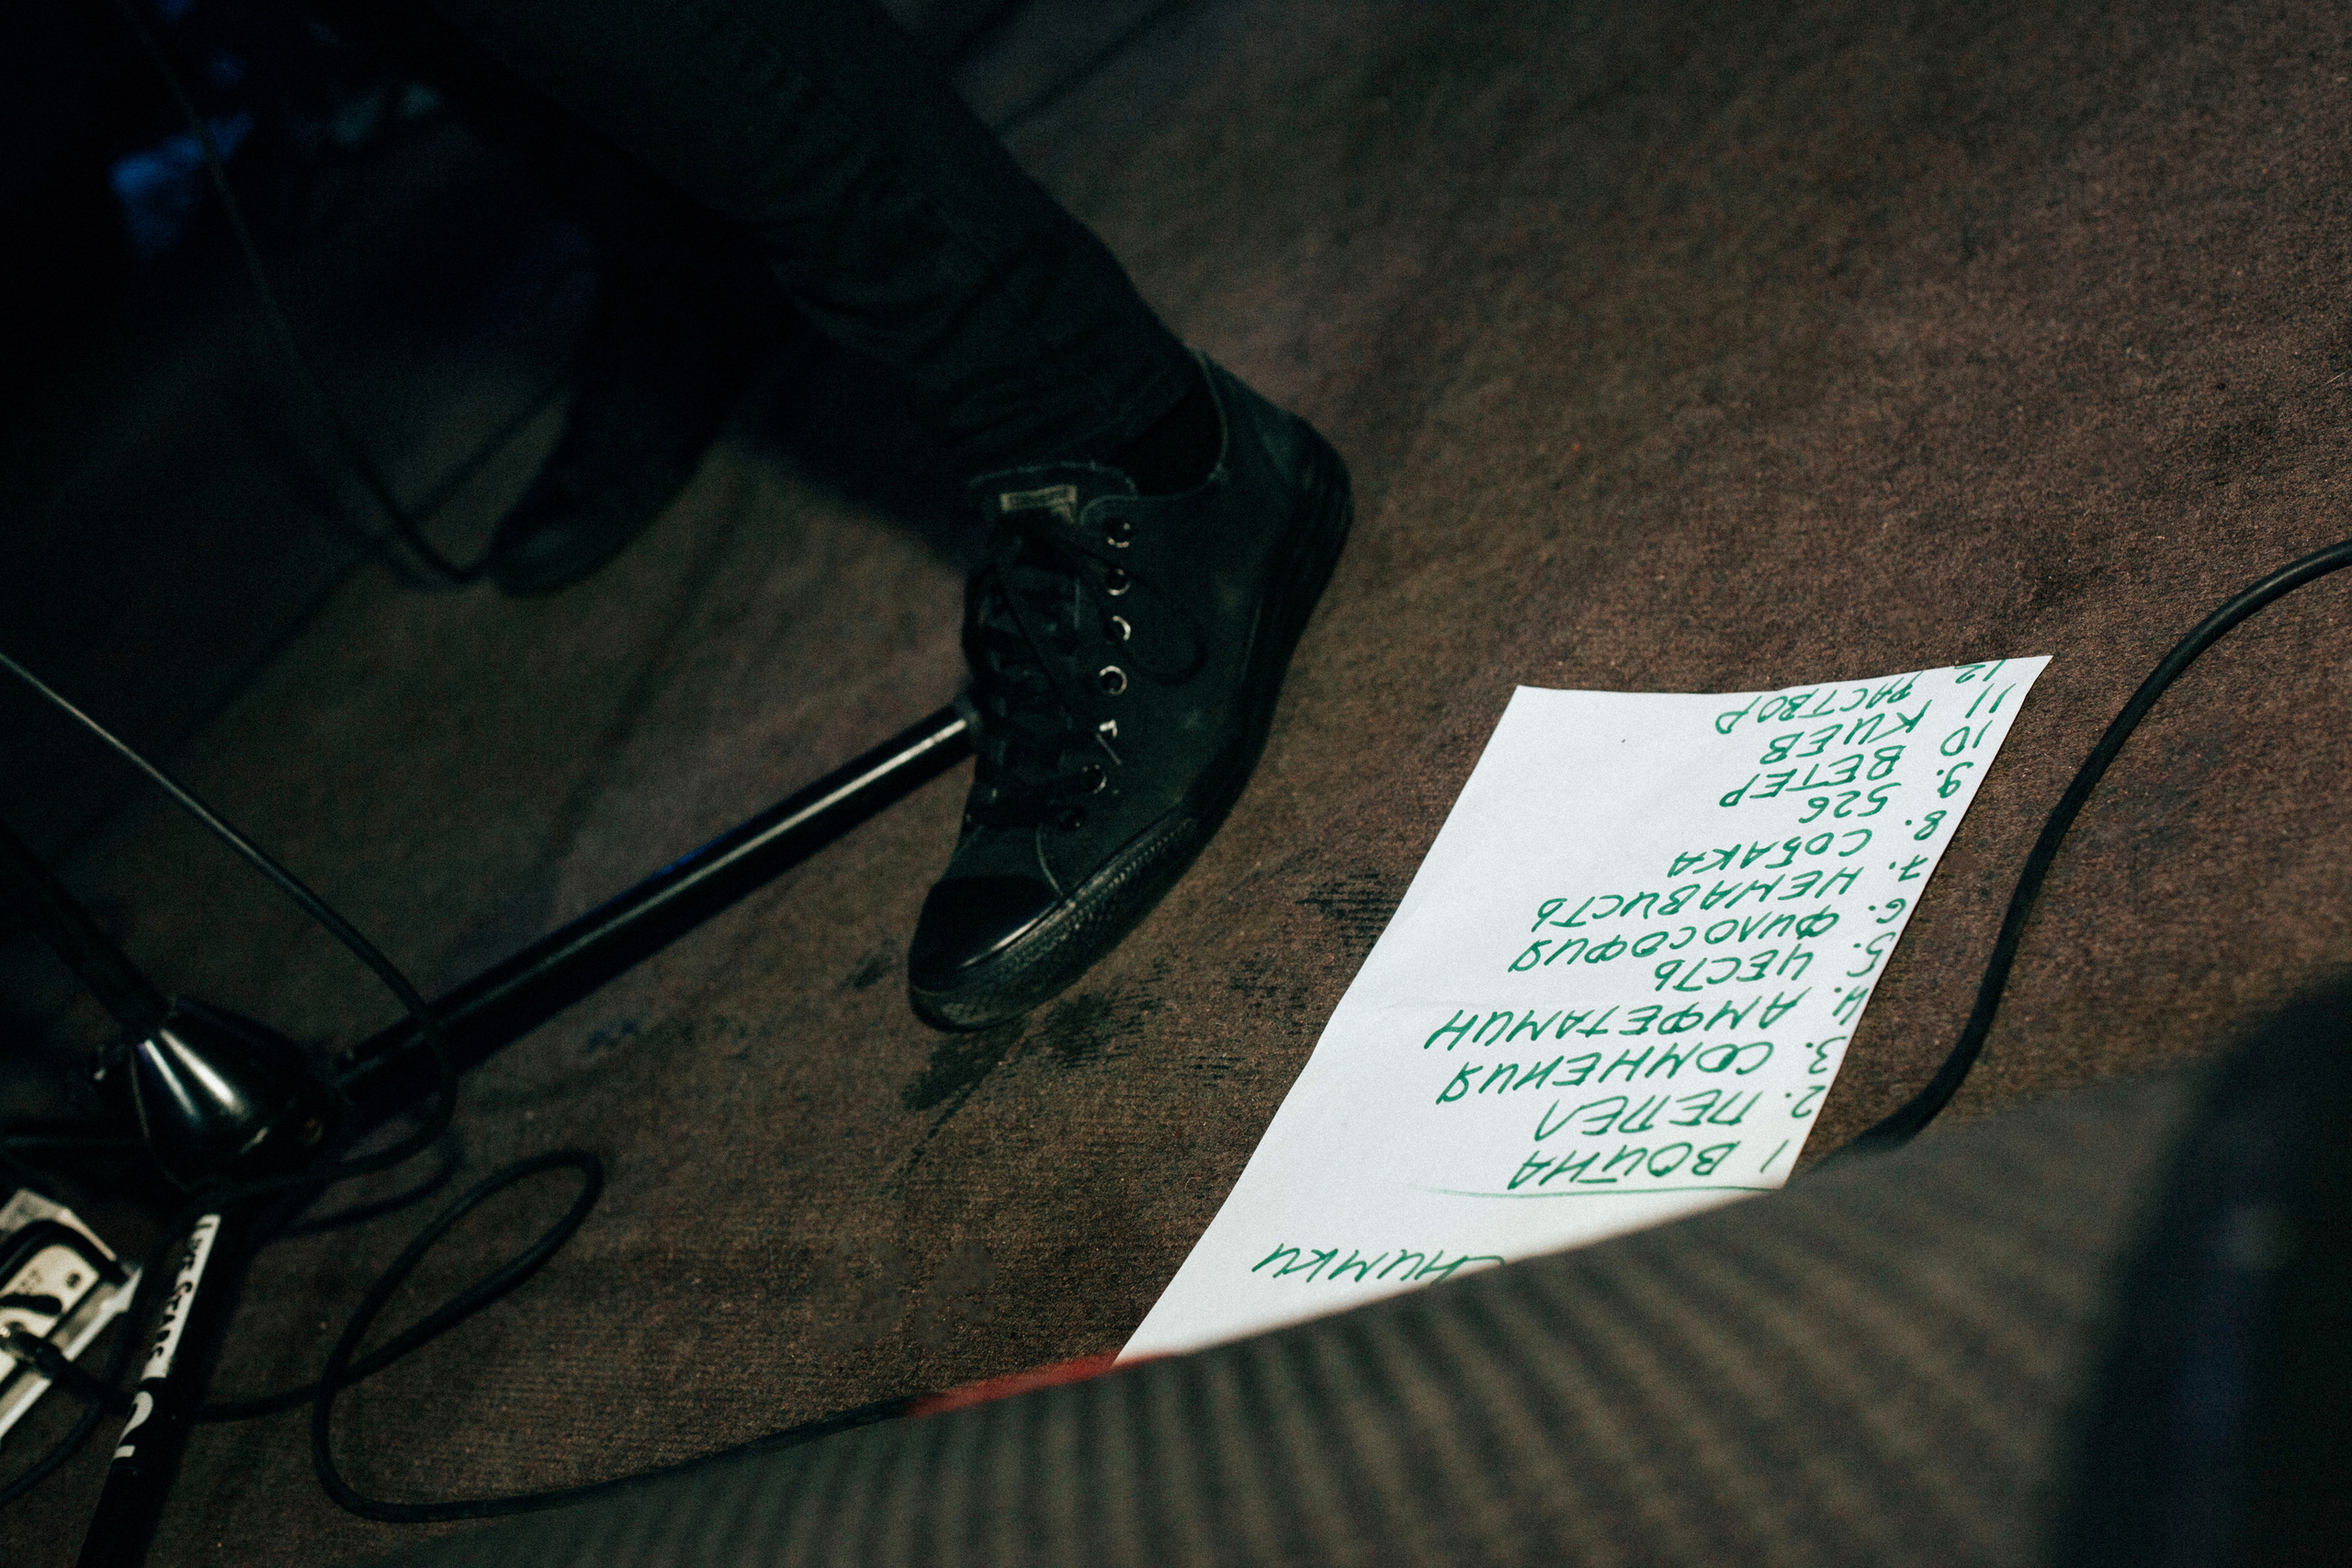 СНИМКИ
1 ВОЙНА
2. ПЕПЕЛ
3. СОМНЕНИЯ
4. АМФЕТАМИН
5. ЧЕСТЬ
6. ФИЛОСОФИЯ
7. НЕНАВИСТЬ
8. СОБАКА
9. 526
10 ВЕТЕР
11 КИЕВ
12 РАСТВОР